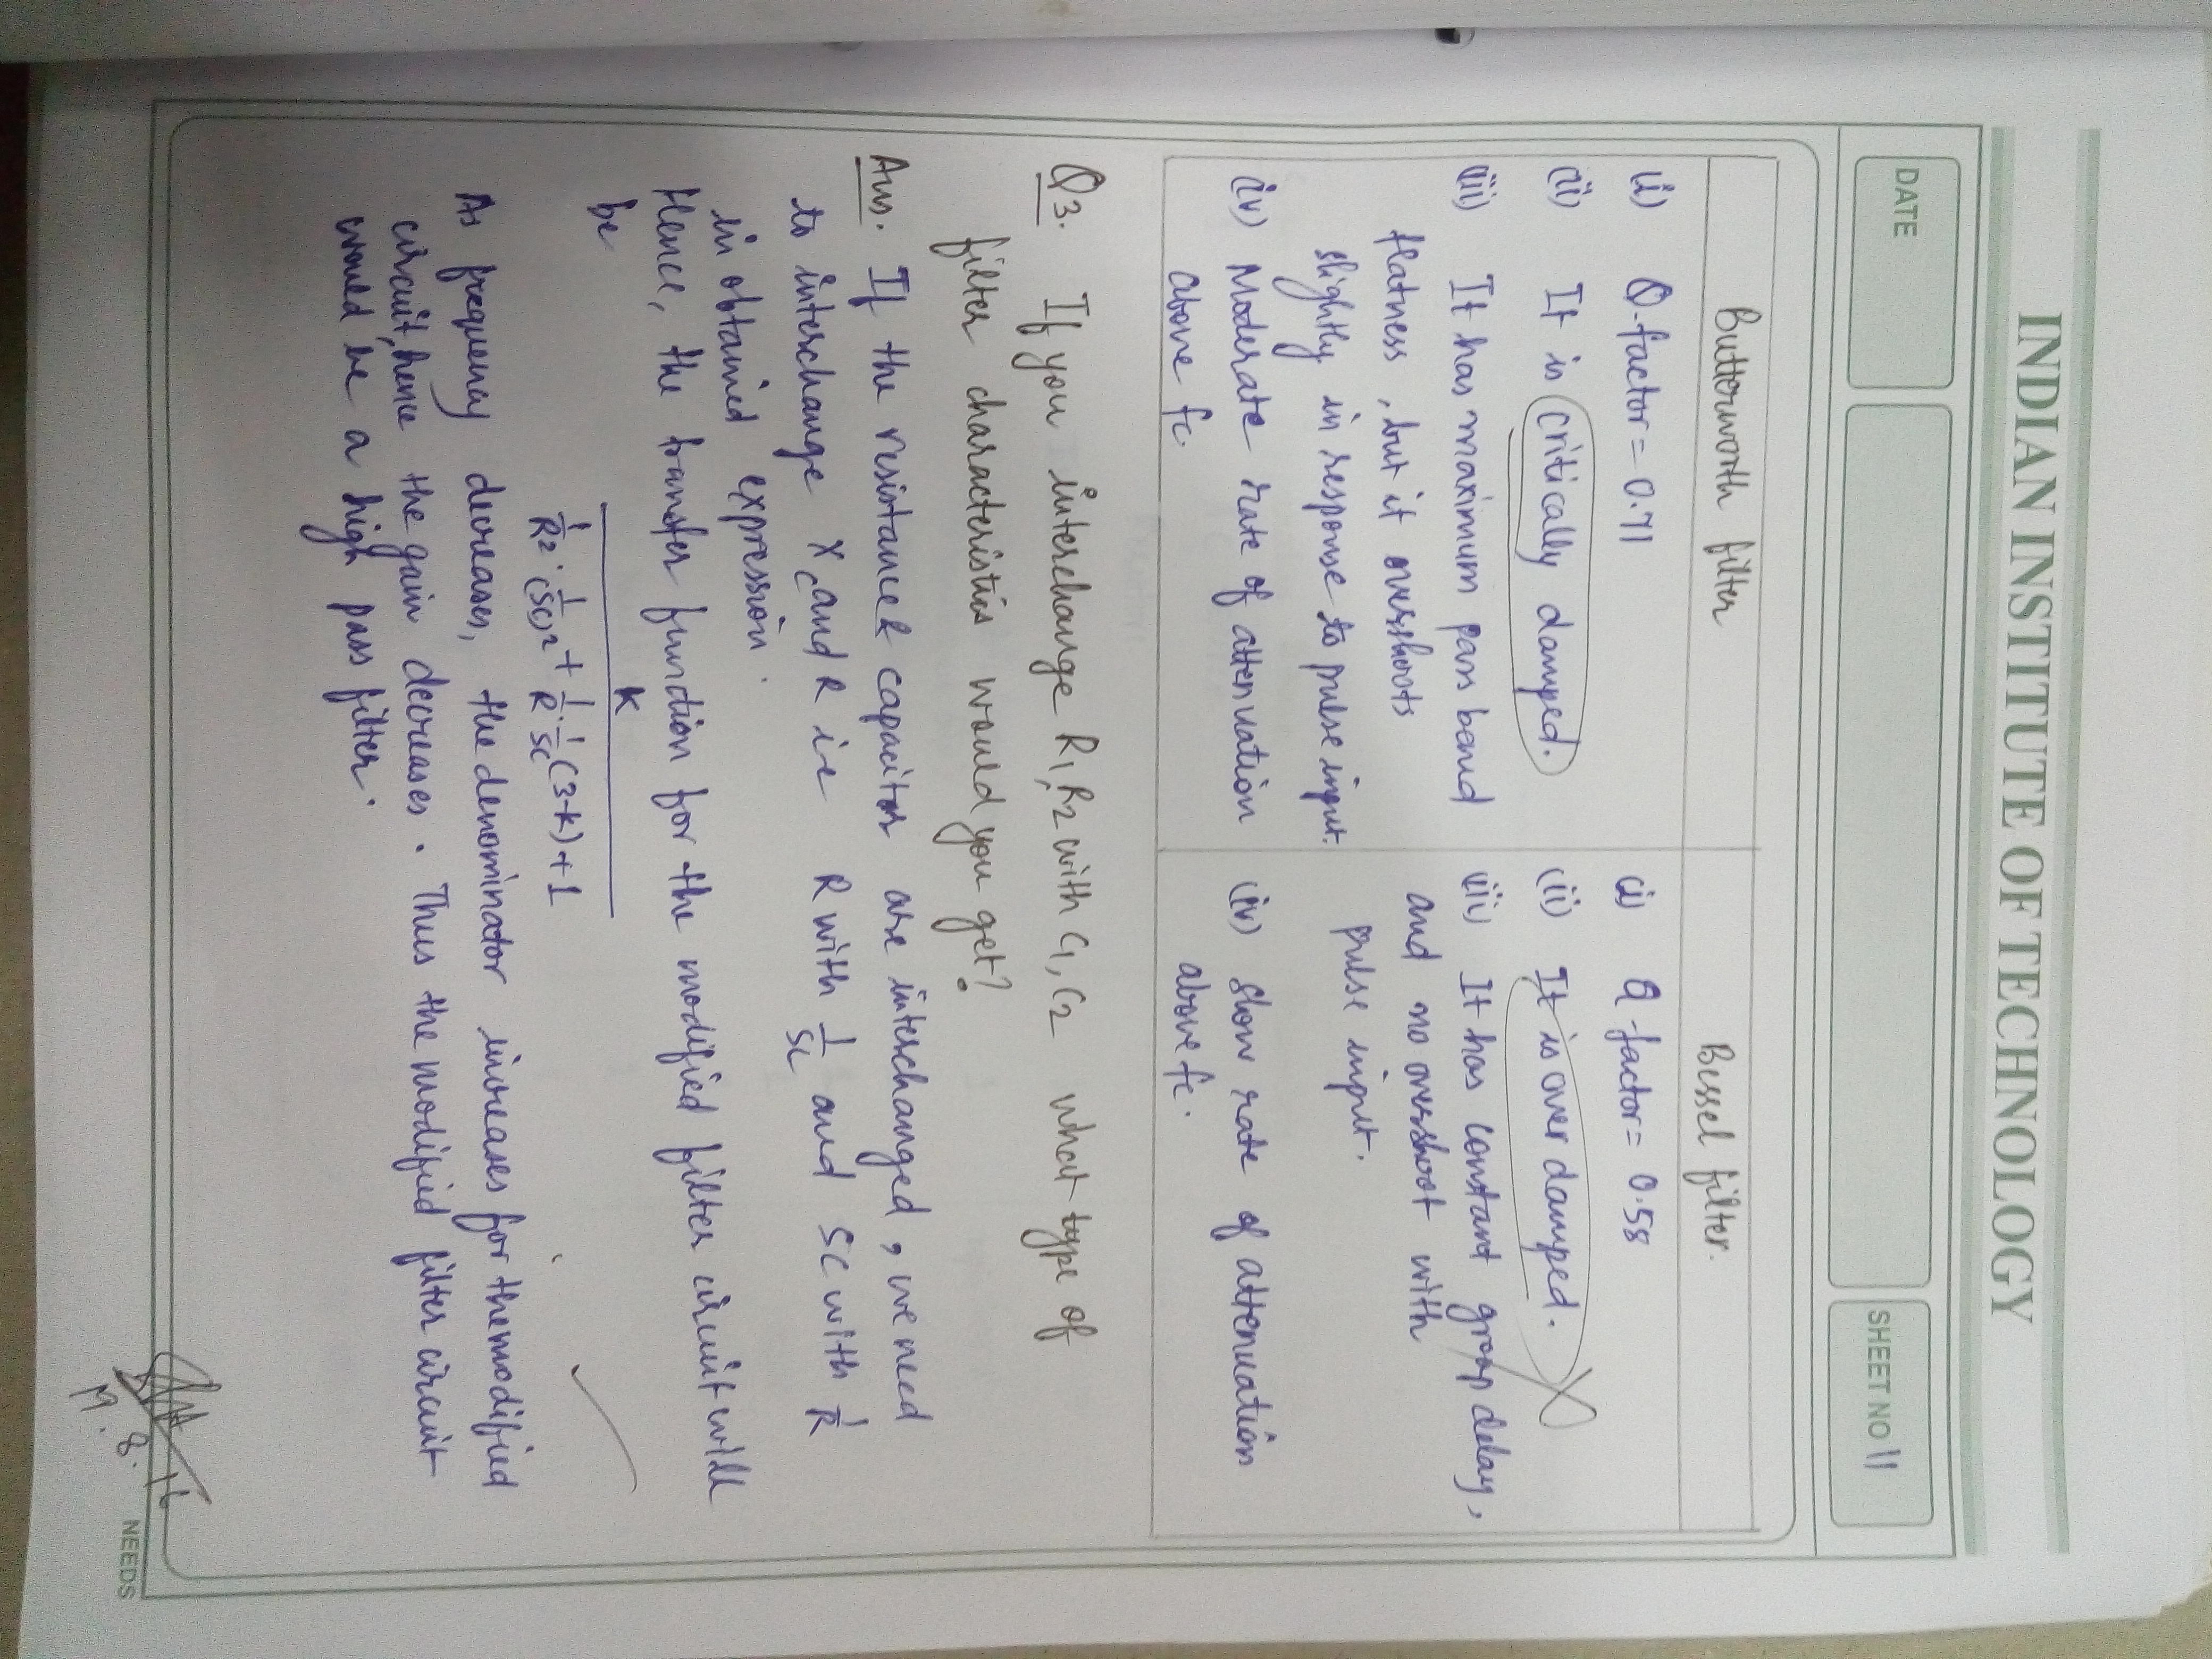 INDIAN INSTITUTE OF TECHNOLOGY
DATE
SHEET NO 11
Butterworth filter
Bessel filter.
(i) Q-factor = 0.71
(i) Q-factor = 0.58
(ii) It is critically damped.
(ii) It is over damped.
(iii) It has maximum pass band
flatness, but it overshoots
slightly in response to pulse input.
(iii) It has constant group delay,
and no overshoot with
pulse input.
(iv) Moderate rate of attenuation
above fc.
(iv) Slow rate of attenuation
above fc.
Q3. If you interchange R1, R2 with C1, C2 what type of
filter characteristics would you get?
Ans. If the resistance & capacitor are interchanged, we need
to interchange Xc and R ie R with 1/SC and SC with 1/R
in obtained expression.
Hence, the transfer function for the modified filter circuit will
be
K
1/R2 · 1/(SC)2 + 1/R · 1/SC (3-K) + 1
As frequency decreases, the denominator increases for the modified
circuit, hence the gain decreases. Thus the modified filter circuit
would be a high pass filter.
8.16
NEEDS